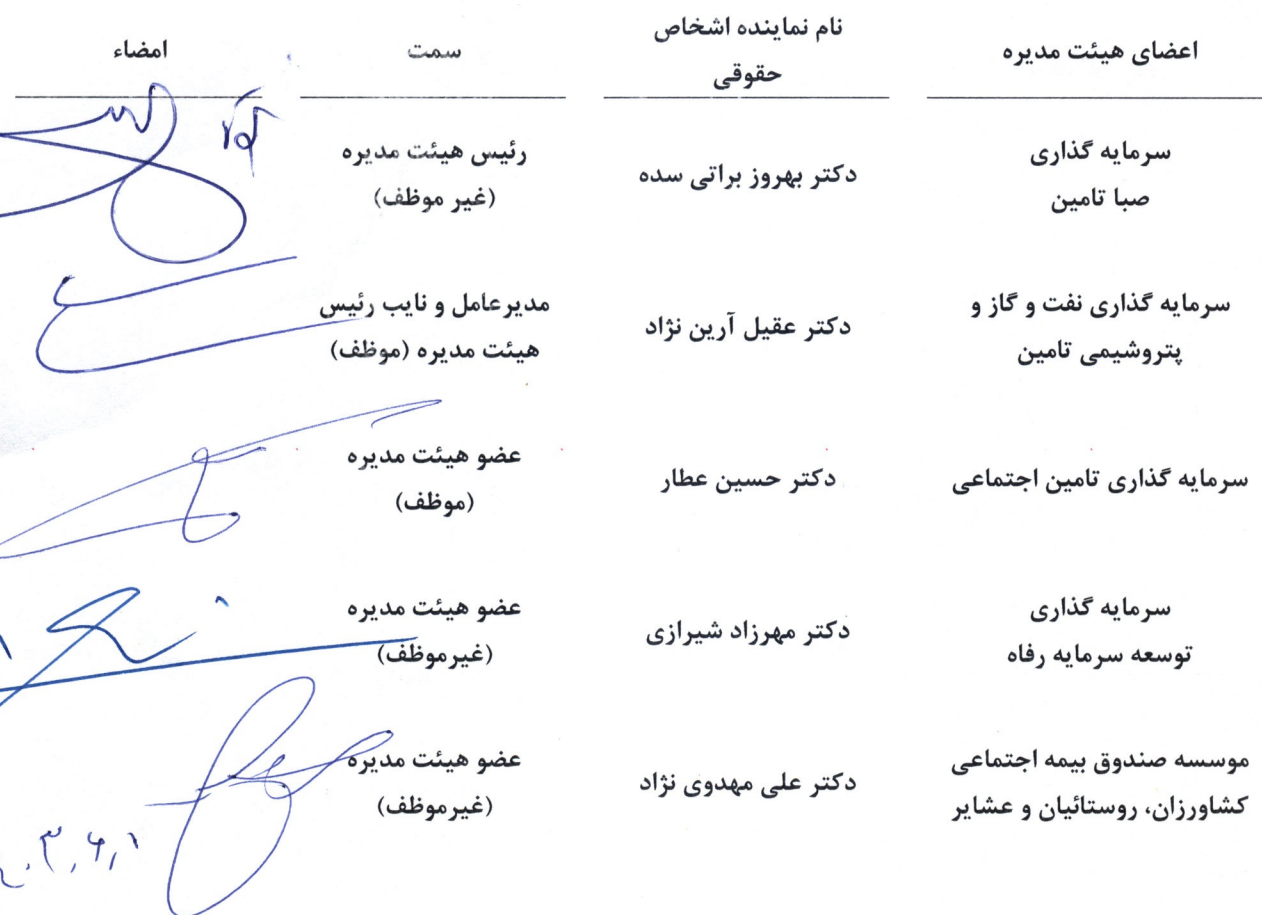 اعضای هیئت مدیره
نام نماینده اشخاص
حقوقی
سمت
امضاء
سرمایه گذاری
صبا تامین
دکتر بهروز براتی سده
رئیس هیئت مدیره
(غیر موظف)
سرمایه گذاری نفت و گاز و
پتروشیمی تامین
دکتر عقیل آرین نژاد
مدیرعامل و نایب رئیس
هیئت مدیره (موظف)
سرمایه گذاری تامین اجتماعی
دکتر حسین عطار
عضو هیئت مدیره
(موظف)
سرمایه گذاری
توسعه سرمایه رفاه
دکتر مهرزاد شیرازی
عضو هیئت مدیره
(غیرموظف)
موسسه صندوق بیمه اجتماعی
کشاورزان، روستائیان و عشایر
دکتر علی مهدوی نژاد
عضو هیئت مدیره
(غیرموظف)